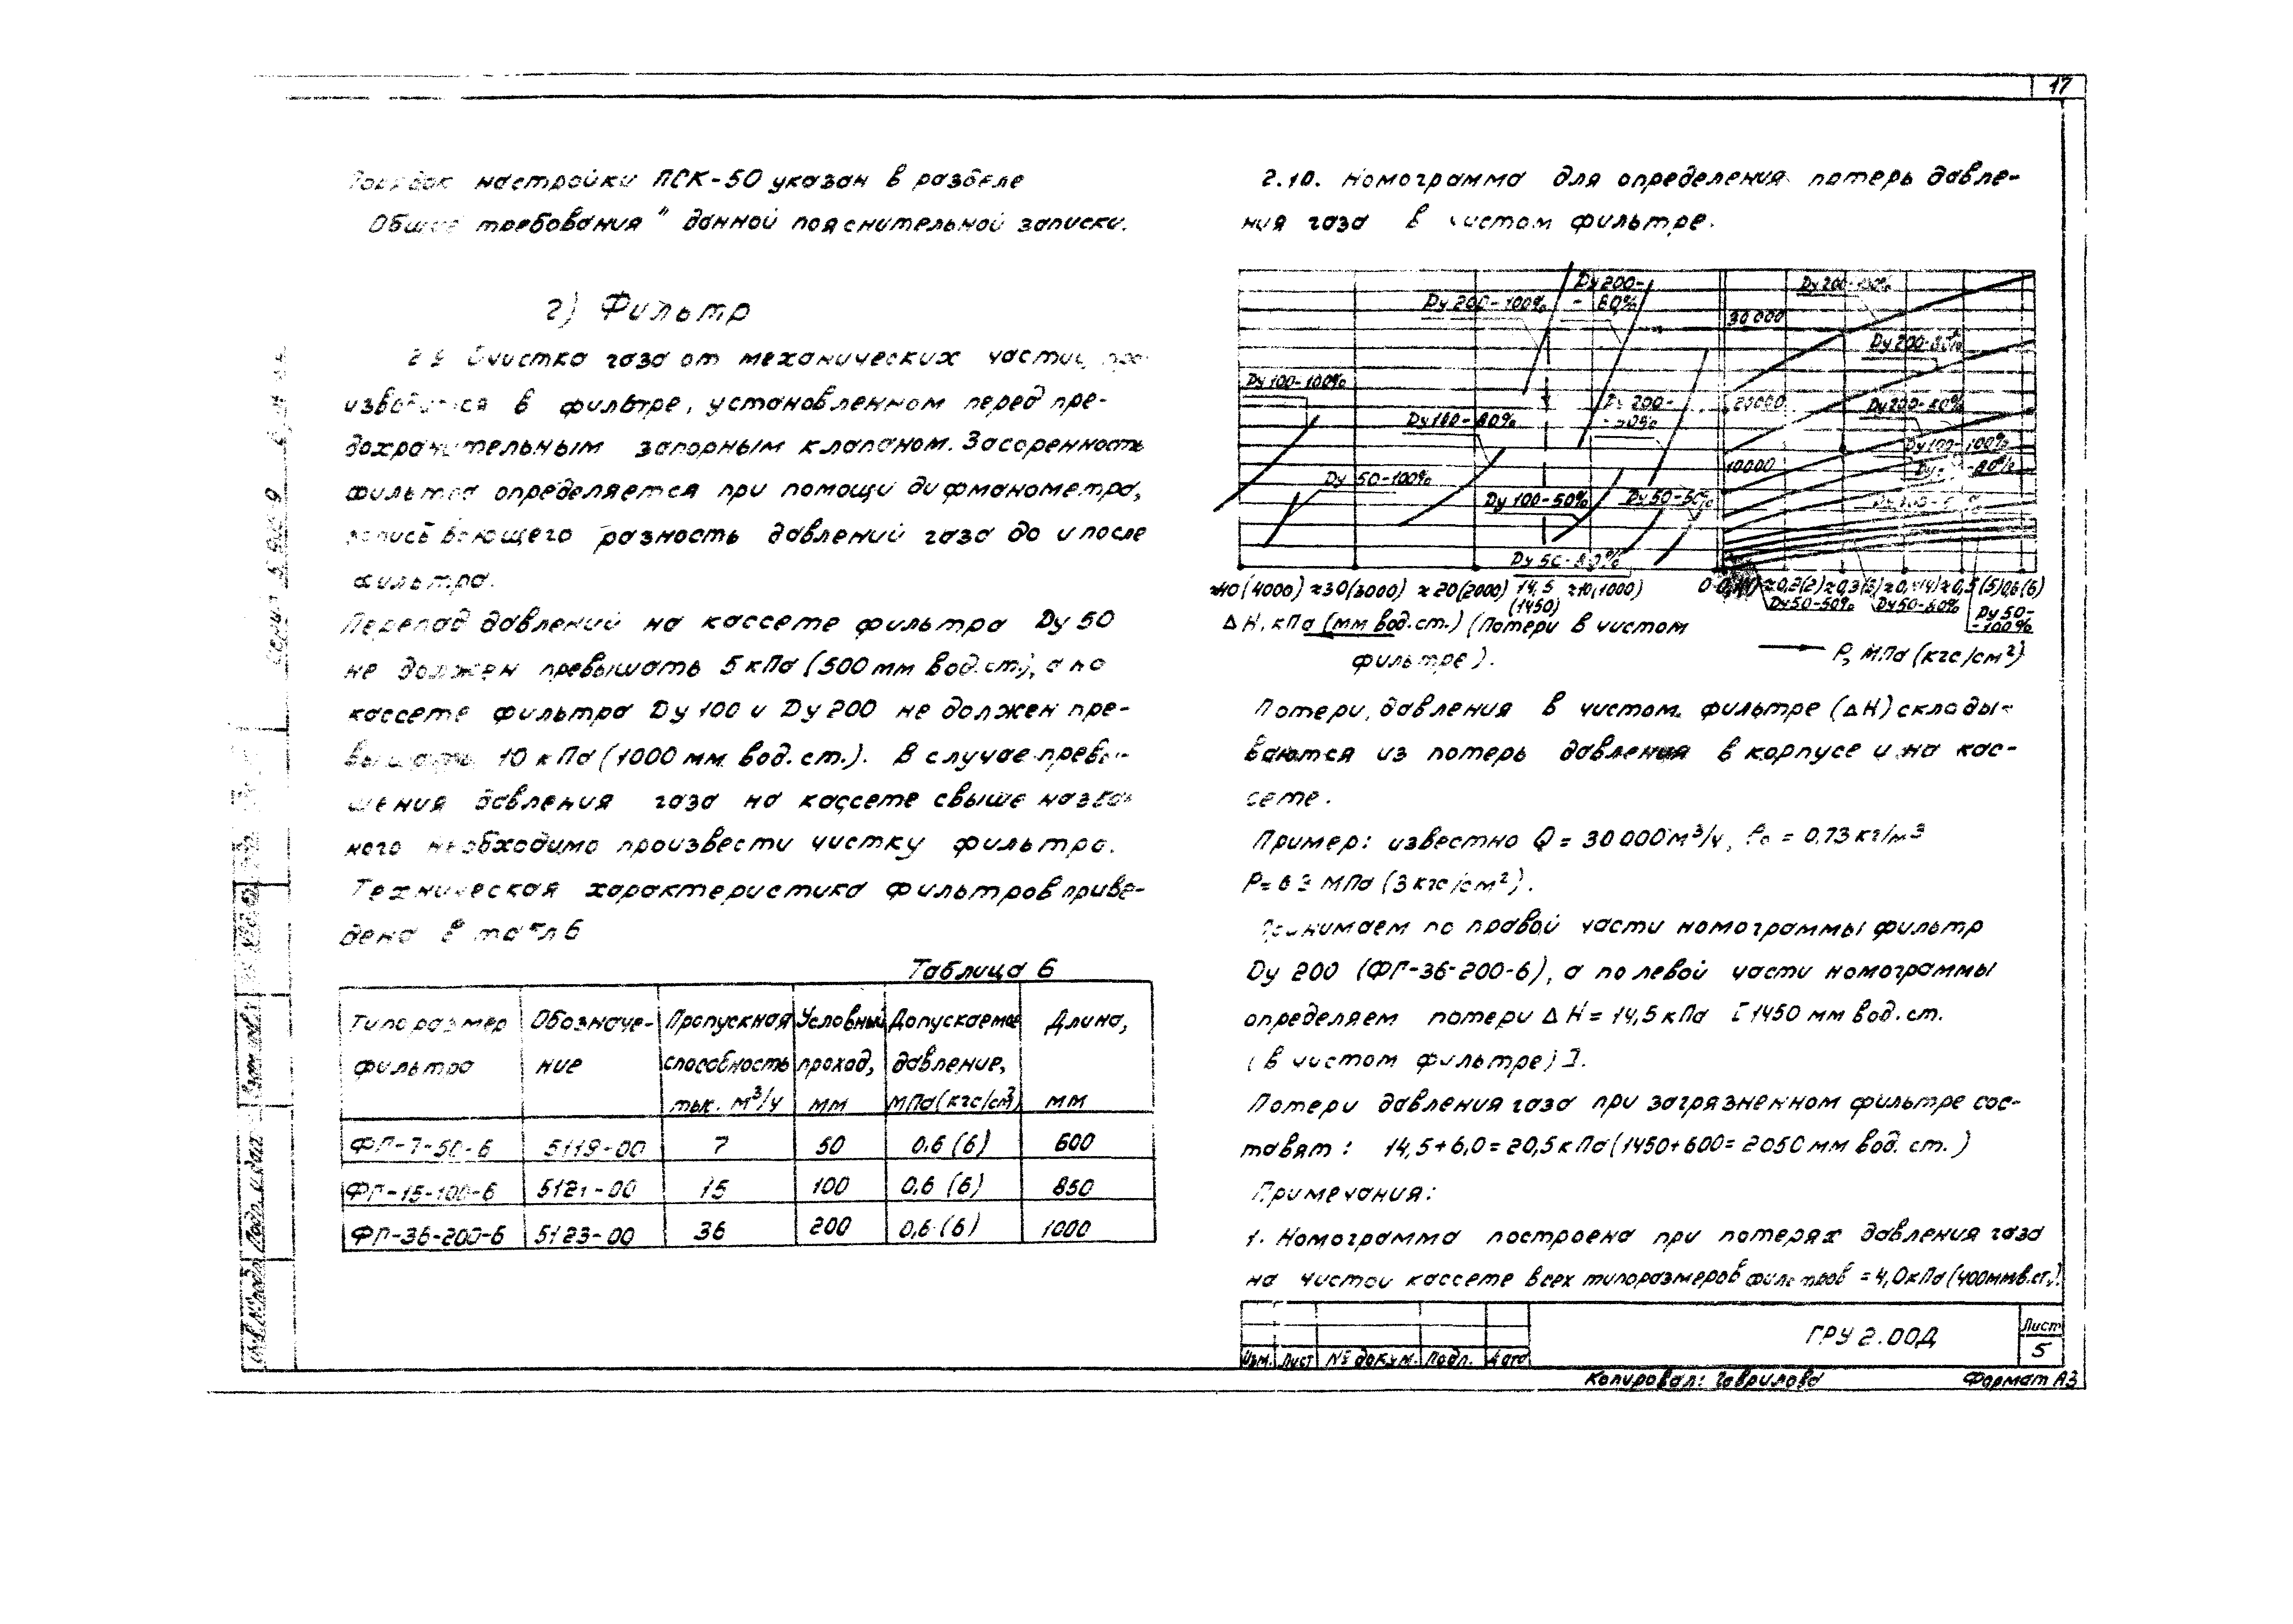 17
Порядок настройки ПСК-50 указан в разделе
Общие требования" данной пояснительной записки.
г) Фильтр
Очистка газа от механических частиц про-
изводится в фильтре, установленном перед пре-
дохранительным запорным клапаном. Засоренность
фильтра определяется при помощи дифманометра,
записывающего разность давлений газа до и после
фильтра.
Перепад давлений на кассете фильтра Ду 50
не должен превышать 5 кПа (500 мм вод.ст.), а на
кассете фильтра Ду 100 и Ду 200 не должен пре-
вышать 10 кПа (1000 мм вод. ст.). В случае превы-
шения давления газа на кассете свыше назван-
ного необходимо произвести чистку фильтра.
Техническая характеристика фильтров приве-
дена в табл 6
Таблица 6
Типоразмер Обозначе- Пропускная Условный Допускаемое Длина,
фильтра ние способность проход, давление,
тыс. м³/ч мм МПа (кгс/см²) мм
ФГ-7-50-6 5119-00 7 50 0,6 (6) 600
ФГ-15-100-6 5121-00 15 100 0,6 (6) 850
ФГ-36-200-6 5123-00 36 200 0,6 (6) 1000
2.10. Номограмма для определения потерь давле-
ния газа в чистом фильтре.
Ду 200-
- 80%
Ду 200-100%
Ду 200-100%
30 000
Ду 200-80%
Ду 100-100%
Ду 200-
-50%
20000
Ду 200-50%
Ду 100-80%
Ду 100-100%
10000
Ду -80%
Ду 50-100%
Ду 100-50%
Ду 50-50%
Ду 50-80%
≈40 (4000) ≈30 (3000) ≈20 (2000) 14,5 ≈10 (1000) 0 ≈0,2(2) ≈0,3(3) ≈0,4(4) ≈0,5 (5) 0,6 (6)
(1450)
Ду 50-50% Ду 50-80% Ду 50-
-100%
ΔН, кПа (мм вод.ст.) (Потери в чистом
фильтре).
Р, МПа (кгс/см²)
Потери давления в чистом фильтре (ΔН) склады-
ваются из потерь давления в корпусе и на кас-
сете.
Пример: известно Q = 30 000 м³/ч, ρ₀ = 0,73 кг/м³
Р= 0,3 МПа (3 кгс/см²).
Принимаем по правой части номограммы фильтр
Ду 200 (ФГ-36-200-6), а по левой части номограммы
определяем потери ΔН = 14,5 кПа [1450 мм вод. ст.
(в чистом фильтре)].
Потери давления газа при загрязненном фильтре сос-
тавят: 14,5+6,0=20,5 кПа (1450+600=2050 мм вод. ст.)
Примечания:
1. Номограмма построена при потерях давления газа
на чистой кассете всех типоразмеров фильтров = 4,0 кПа (400 мм в.ст.).
ГРУ 2.00Д
Лист
5
Изм. Лист № докум. Подп. Дата
Копировал: Гаврилова Формат А3
Инв.№ подл. Подп. и дата